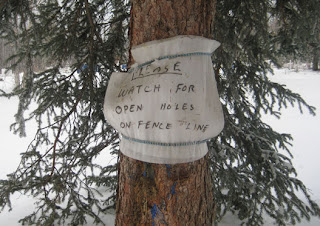 PLEASE
WATCH FOR
OPEN HOLES
ON FENCE LINE